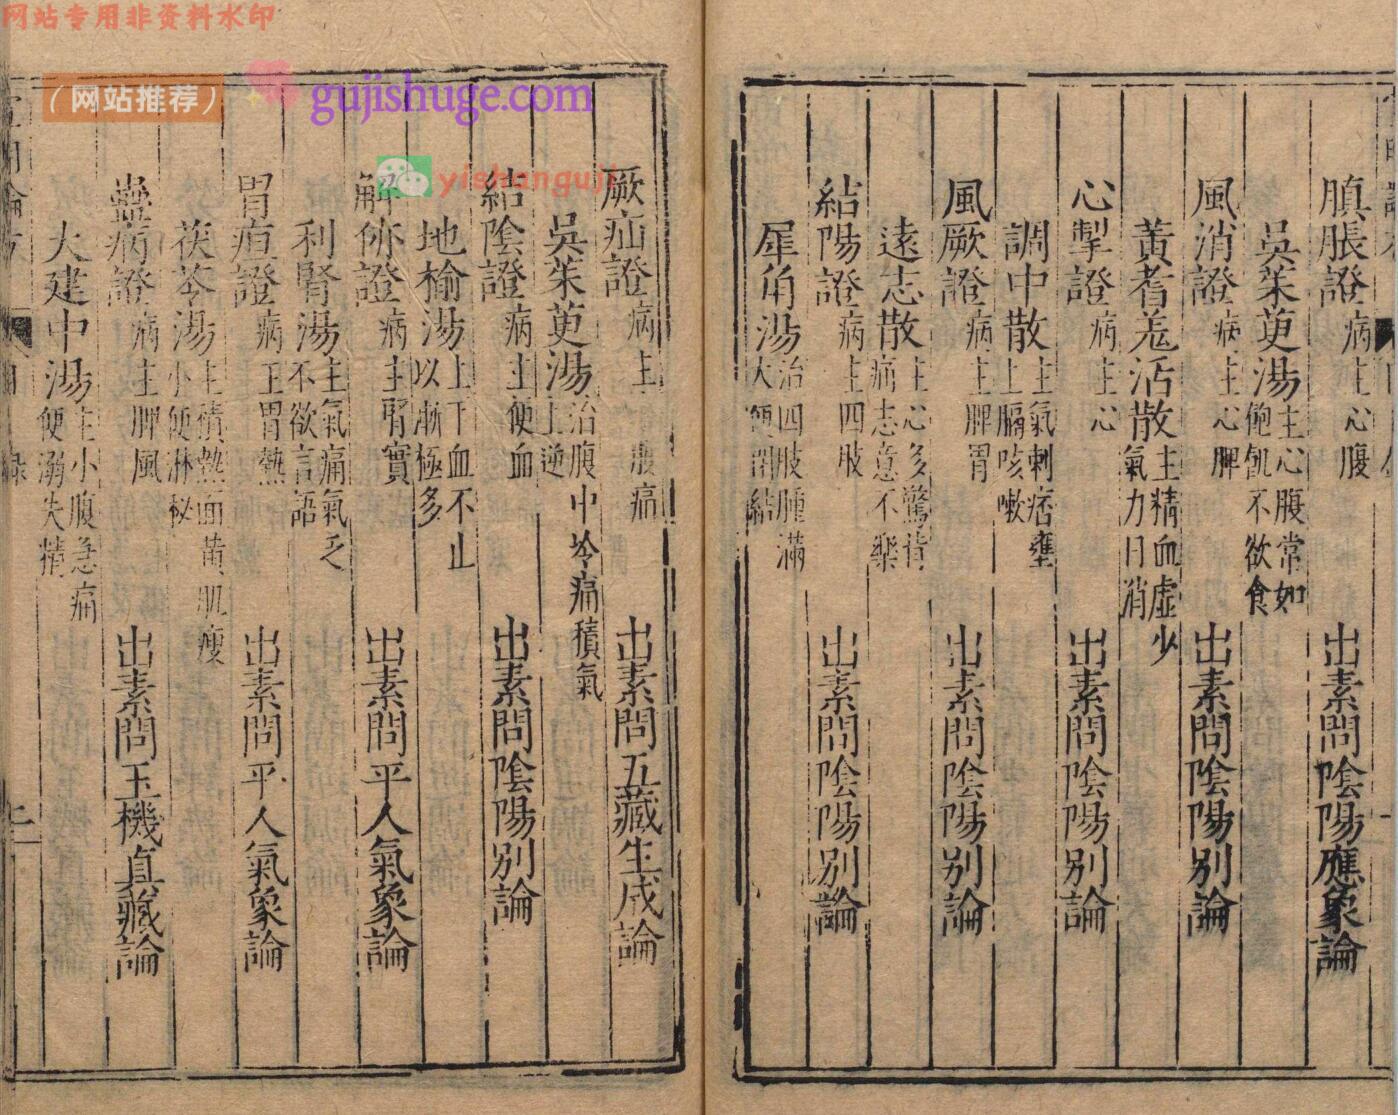 网站专用非资料水印
（网站推荐）
gujishuge.com
yishanguji
䐜脹證病主心腹　出素問陰陽應象論
吳茱萸湯主心腹常如飽飢不欲食
風消證病主心脾　出素問陰陽別論
黃耆羗活散主精血虛少氣力日消
心掣證病主心　出素問陰陽別論
調中散主氣刺痞壅上膈咳嗽
風厥證病主脾胃　出素問陰陽別論
遠志散主心多驚背痛志意不樂
結陽證病主四肢　出素問陰陽別論
犀角湯治四肢腫滿大便閉結
厥疝證病主腹痛　出素問五藏生成論
吳茱萸湯治腹中冷痛積氣上逆
結陰證病主便血　出素問陰陽別論
地榆湯主下血不止以漸極多
解㑊證病主腎實　出素問平人氣象論
利腎湯主氣痛氣乏不欲言語
胃疸證病主胃熱　出素問平人氣象論
茯苓湯主積熱面黃肌瘦小便淋秘
蠱病證病主脾風　出素問玉機真藏論
大建中湯主小腹急痛便溺失精